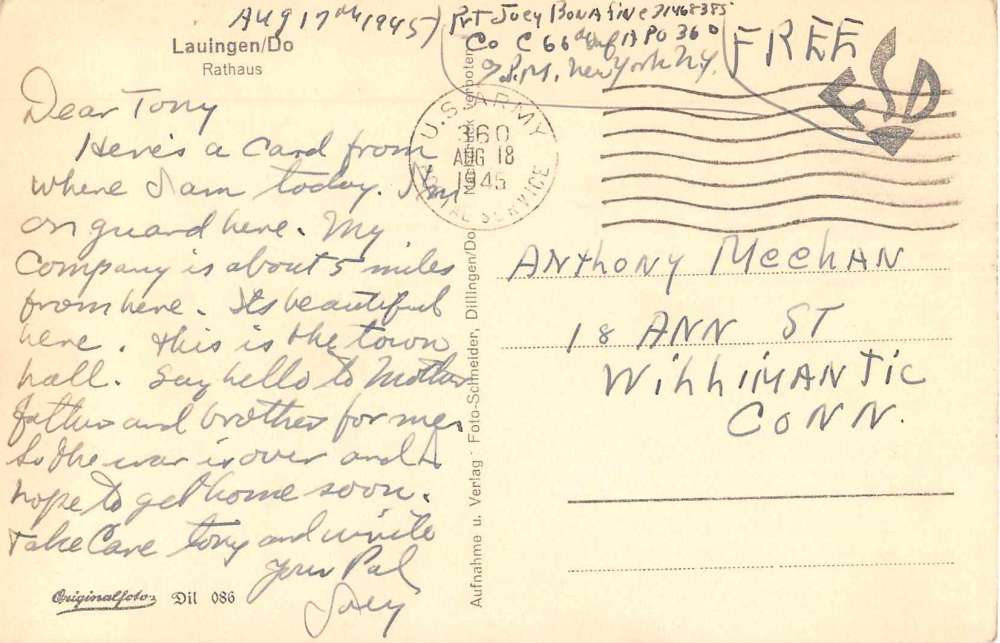 Aug 17th 1945
Pvt Joey Bonafine 31468385
Co C 66th Inf APO 360
P.M. New York N.Y.
FREE
Lauingen/Do
Rathaus
Dear Tony
Here's a Card from
where I am today. I'm
on guard here. My
Company is about 5 miles
from here. Its beautiful
here. This is the town
hall. Say hello to Mother
father and brother for me.
So the war is over and I
hope to get home soon.
Take Care Tony and write
Your Pal
Joey
Originalfoto Dil 086
U.S. ARMY
360
AUG 18
1945
POSTAL SERVICE
Aufnahme u. Verlag Foto-Schneider, Dillingen/Do.
verboten
Anthony Meehan
18 Ann St
Willimantic
Conn.